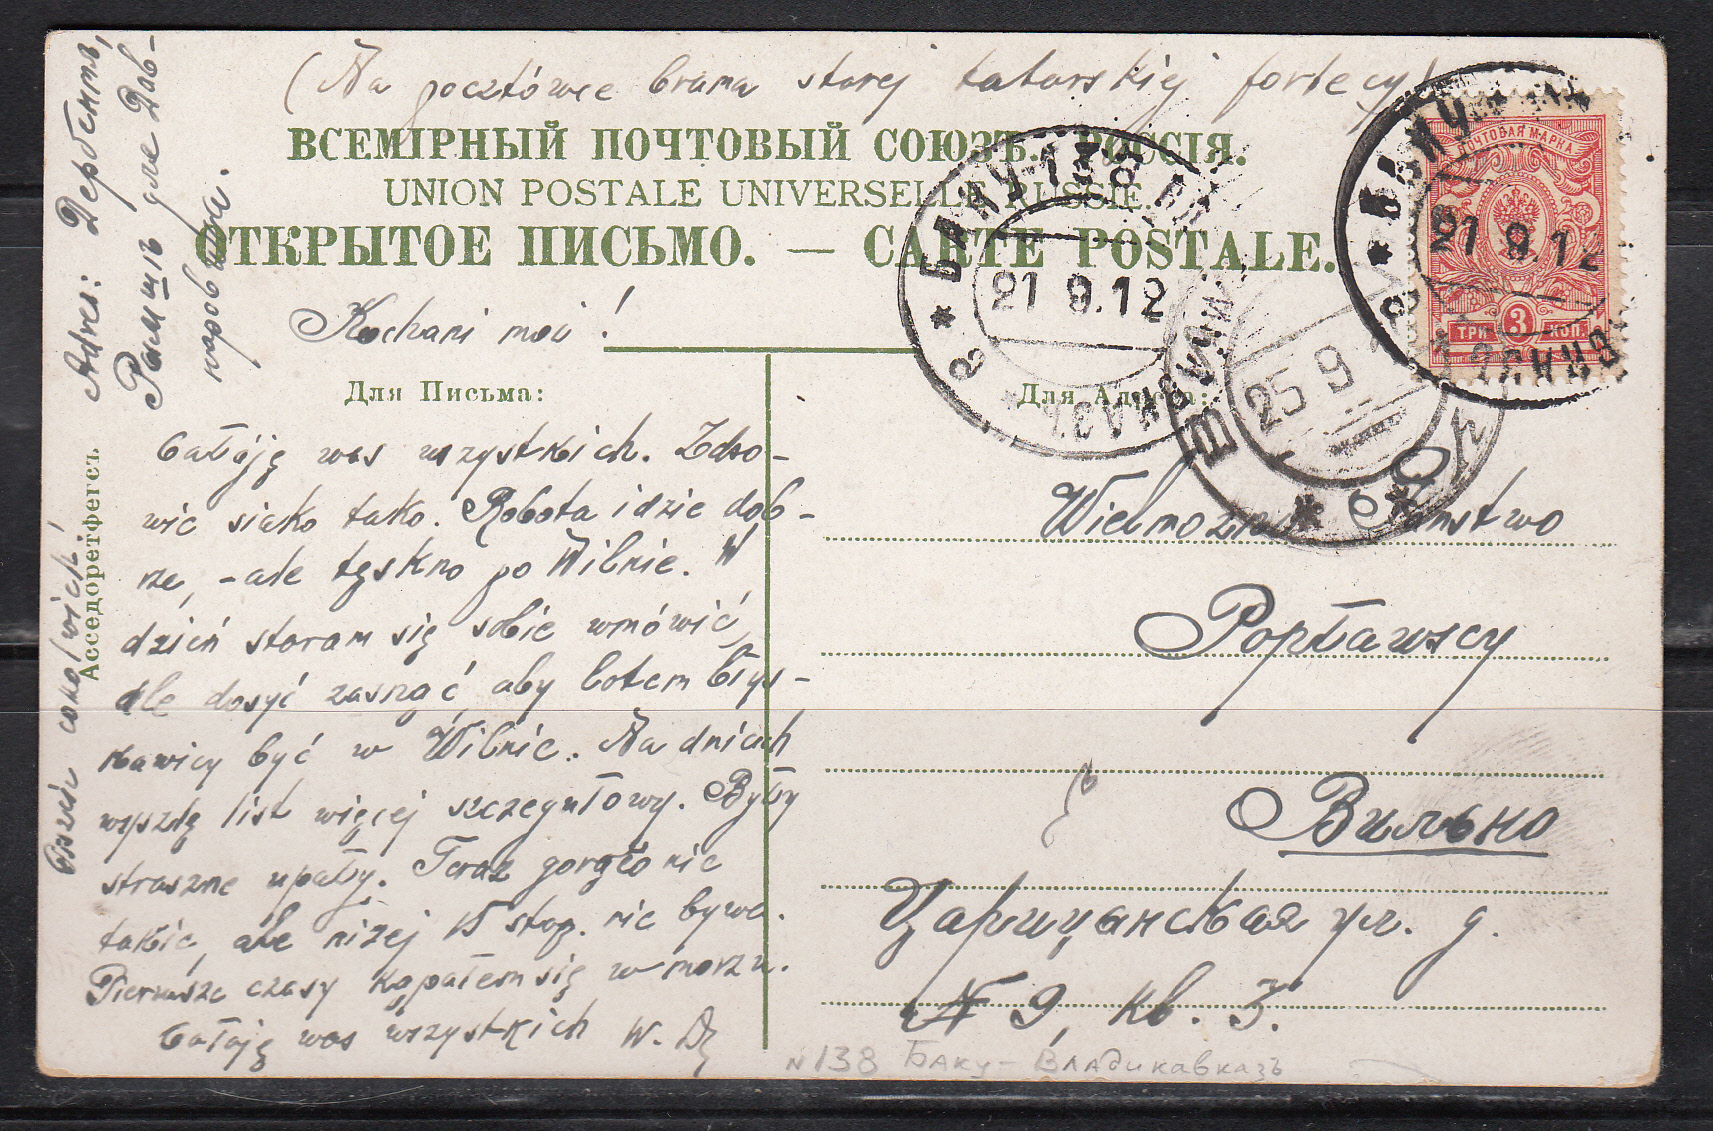 (Na pocztówce brama starej tatarskiej fortecy)
ВСЕМІРНЫЙ ПОЧТОВЫЙ СОЮЗЪ. РОССІЯ.
UNION POSTALE UNIVERSELLE RUSSIE.
ОТКРЫТОЕ ПИСЬМО. — CARTE POSTALE.
Adres: Дербентъ,
для Дов-
Kochani moi!
Для Письма:
Całuję was wszystkich. Zdro-
wie siako tako. Robota idzie dob-
rze, - ale tęskno po Wilnie. W
dzień staram się sobie wmówić,
ale dosyć zasnąć, aby lotem błys-
kawicy być w Wilnie. Na dniach
wyszlę list więcej szczegułowy. Były
straszne upały. Teraz gorąco nie
takie, ale niżej 15 stop. nie bywa.
Pierwsze czasy kąpałem się w morzu.
Całuję was wszystkich W.
Асседоретфегсъ
ПОЧТОВАЯ МАРКА
ТРИ 3 КОП
БАКУ
21 9.12
БАКУ
21 9.12
25 9
Для Адреса:
Wielmożni Państwo
Popławscy
Вильно
Царицынская ул. д.
N 9, кв. 3.
N138 Баку-Владикавказъ